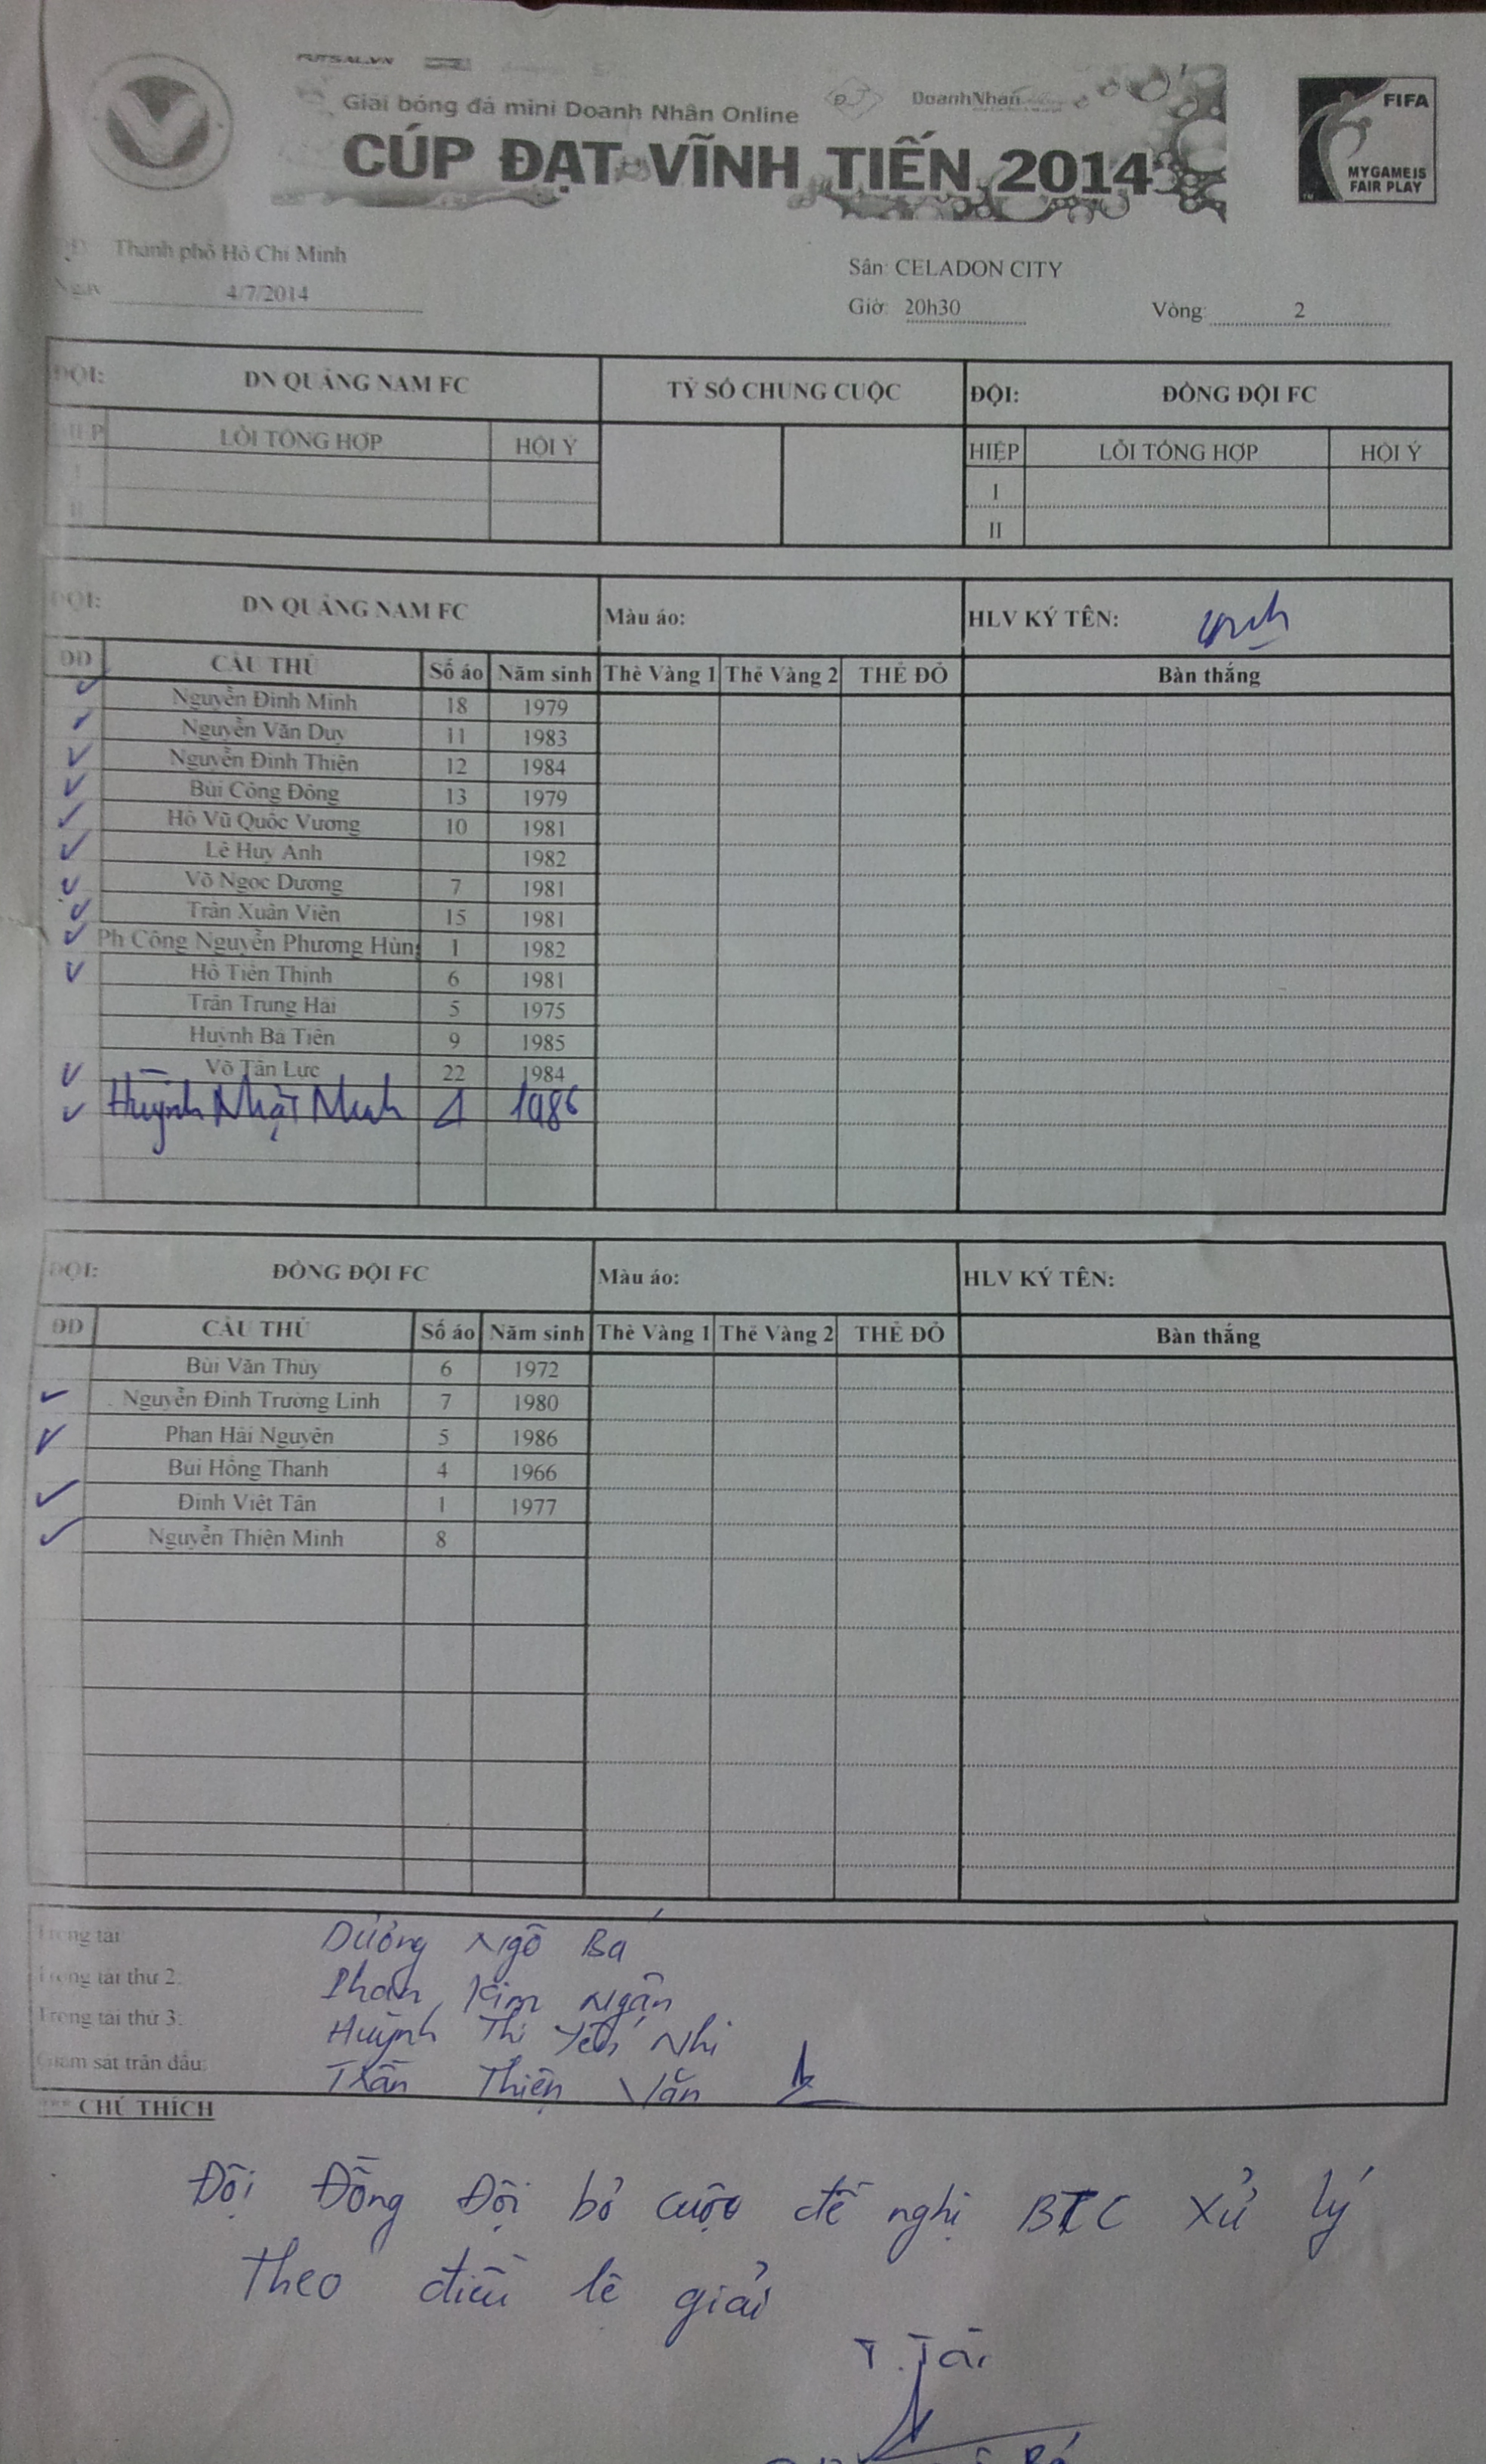 FUTSAL.VN
Giải bóng đá mini Doanh Nhân Online
DoanhNhân
CÚP ĐẠT VĨNH TIẾN 2014
FIFA
MY GAME IS
FAIR PLAY
Thành phố Hồ Chí Minh
Sân: CELADON CITY
Ngày 4/7/2014
Giờ: 20h30 Vòng: 2
ĐỘI: DN QUẢNG NAM FC TỶ SỐ CHUNG CUỘC ĐỘI: ĐỒNG ĐỘI FC
HIỆP LỖI TỔNG HỢP HỘI Ý HIỆP LỖI TỔNG HỢP HỘI Ý
I I
II II
ĐỘI: DN QUẢNG NAM FC Màu áo: HLV KÝ TÊN:
ĐD CẦU THỦ Số áo Năm sinh Thẻ Vàng 1 Thẻ Vàng 2 THẺ ĐỎ Bàn thắng
Nguyễn Đình Minh 18 1979
Nguyễn Văn Duy 11 1983
Nguyễn Đình Thiện 12 1984
Bùi Công Đông 13 1979
Hồ Vũ Quốc Vương 10 1981
Lê Huy Anh 1982
Võ Ngọc Dương 7 1981
Trần Xuân Viên 15 1981
Ph Công Nguyễn Phương Hùng 1 1982
Hồ Tiến Thịnh 6 1981
Trần Trung Hải 5 1975
Huỳnh Bá Tiên 9 1985
Võ Tấn Lực 22 1984
Huỳnh Nhật Minh 1 1986
ĐỘI: ĐỒNG ĐỘI FC Màu áo: HLV KÝ TÊN:
ĐD CẦU THỦ Số áo Năm sinh Thẻ Vàng 1 Thẻ Vàng 2 THẺ ĐỎ Bàn thắng
Bùi Văn Thủy 6 1972
Nguyễn Đình Trường Linh 7 1980
Phan Hải Nguyên 5 1986
Bùi Hồng Thanh 4 1966
Đinh Việt Tân 1 1977
Nguyễn Thiện Minh 8
Trọng tài Dương Ngô Bá
Trọng tài thứ 2: Phan Kim Ngân
Trọng tài thứ 3: Huỳnh Thị Yến Nhi
Giám sát trận đấu: Trần Thiện Văn
*** CHÚ THÍCH
Đội Đồng Đội bỏ cuộc đề nghị BTC xử lý
theo điều lệ giải
T.Tài
Bá